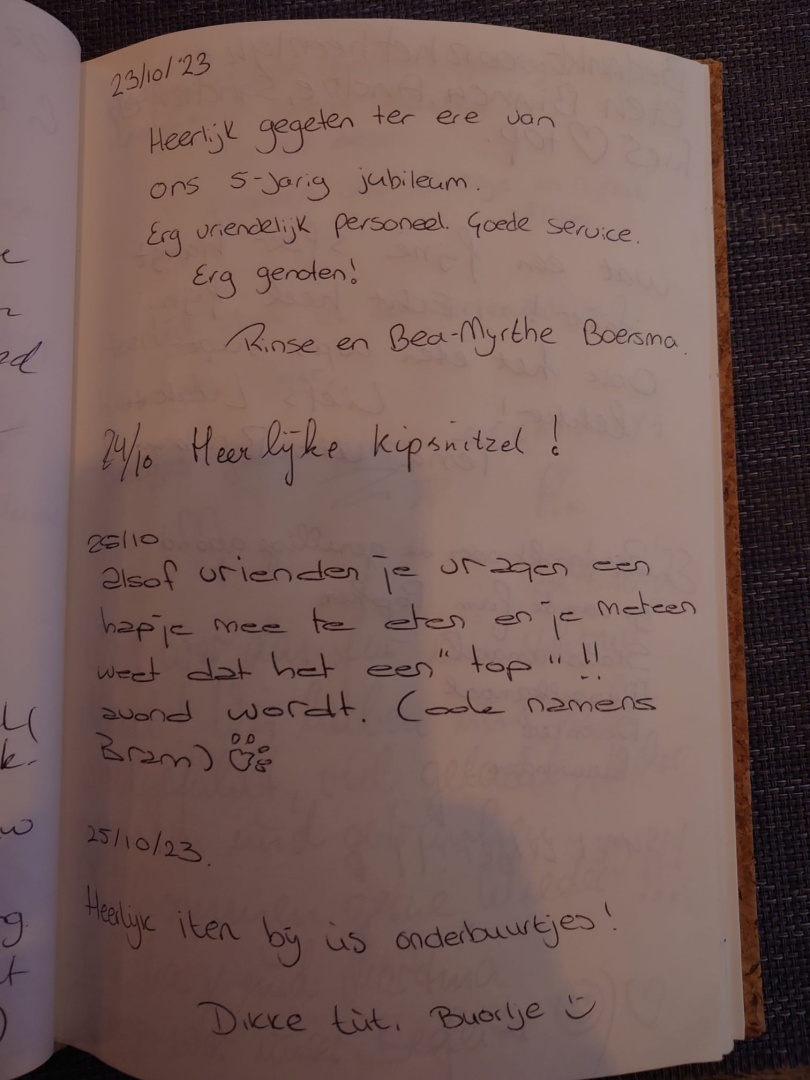 23/10/'23
Heerlijk gegeten ter ere van
ons 5-jarig jubileum.
Erg vriendelijk personeel. Goede service.
Erg genoten!
Rinse en Bea-Myrthe Boersma.
24/10 Heerlijke kipsnitzel !
25/10
alsof vrienden je vragen een
hapje mee te eten en je meteen
weet dat het een "top" !!
avond wordt. (ook namens
Bram)
25/10/23.
Heerlijk iten bij ús onderbuurtjes!
Dikke tút, Buortje